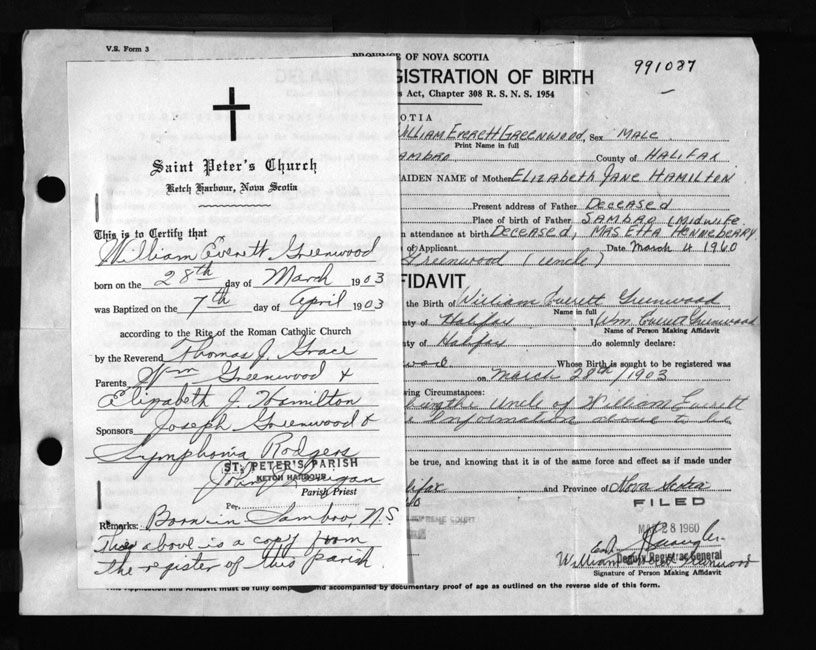 V.S. Form 3
PROVINCE OF NOVA SCOTIA
991087
GISTRATION OF BIRTH
s Act, Chapter 308 R. S. N. S. 1954
Saint Peter's Church
Ketch Harbour, Nova Scotia
This is to Certify that
William Everett Greenwood
born on the 28th day of March 1903
was Baptized on the 7th day of April 1903
according to the Rite of the Roman Catholic Church
by the Reverend Thomas J. Grace
Parents Wm Greenwood &
Elizabeth J. Hamilton
Sponsors Joseph Greenwood &
Symphonia Rodgers
ST. PETER'S PARISH
KETCH HARBOUR
John
Parish Priest
Per
Remarks: Born in Sambro, N.S
The above is a copy from
the register of this parish
OTIA
ILLIAM EVERETT GREENWOOD, Sex MALE
Print Name in full
AMBRO County of HALIFAX
AIDEN NAME of Mother ELIZABETH JANE HAMILTON
Present address of Father DECEASED
Place of birth of Father SAMBRO (MIDWIFE
n attendance at birth DECEASED, MRS. ETTA HENNEBEARY
of Applicant Date March 4 1960
Greenwood (uncle)
FIDAVIT
the Birth of William Everett Greenwood
Name in full
ty of Halifax I Wm Everett Greenwood
Name of Person Making Affidavit
ty of Halifax do solemnly declare:
wood Whose Birth is sought to be registered was
on March 28th/1903
ing Circumstances:
being the Uncle of William Everett
Information above to be
be true, and knowing that it is of the same force and effect as if made under
lifax and Province of Nova Scotia
FILED
SUPREME COURT
MAR 28 1960
Deputy Registrar General
William Everett Greenwood
Signature of Person Making Affidavit
This Application and Affidavit must be fully comp and accompanied by documentary proof of age as outlined on the reverse side of this form.